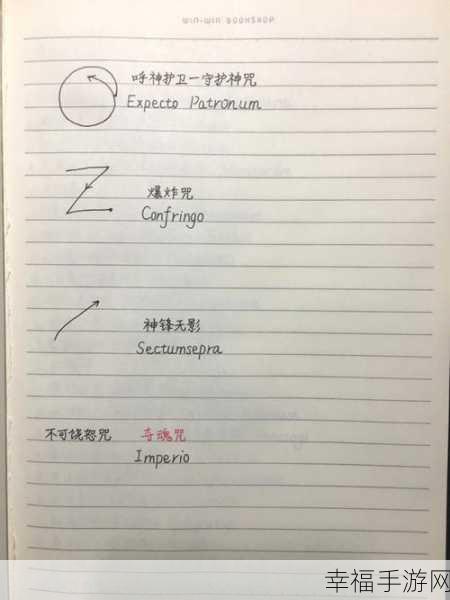 WIN-WIN BOOKSHOP
呼神护卫—守护神咒
Expecto Patronum
爆炸咒
Confringo
神锋无影
Sectumsepra
不可饶恕咒 夺魂咒
Imperio
幸福手游网